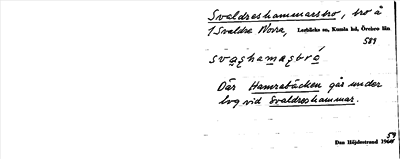 Svaldreshammarsbro, bro å
1 Svaldre Norra, Lerbäcks sn, Kumla hd, Örebro län
589
Där Hamrabäcken går under
lvg vid Svaldreshammar.
59
Dan Höjdestrand 1960